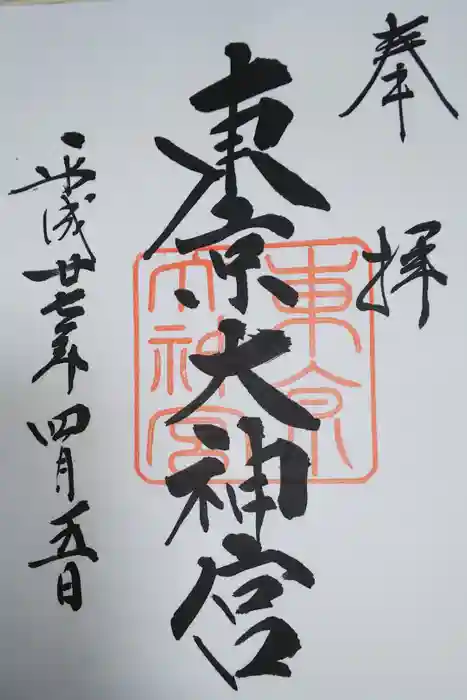 奉拝
東京大神宮
東京大神宮
平成廿七年四月五日